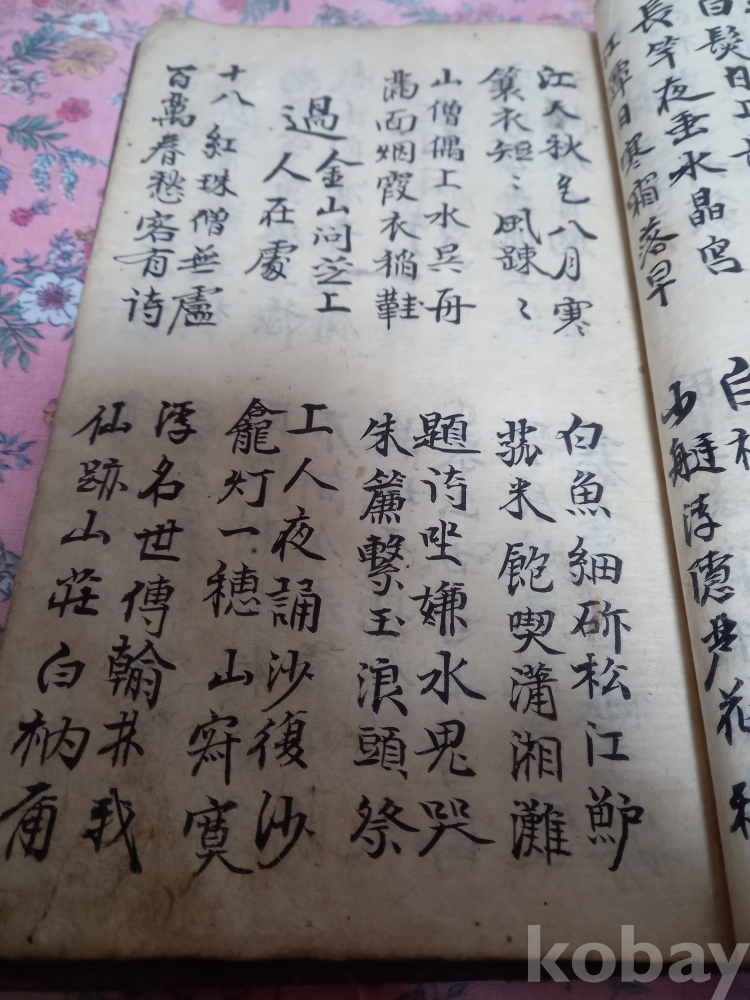 長竿夜垂水晶宮
江潭日寒霜落早
江天秋色八月寒
簑衣短〻風踈〻
白魚細斫松江鱸
菰米飽喫瀟湘灘
山僧偶工水呉舟
滿面烟霞衣鞋
題诗坐嫌水鬼哭
朱簾繫玉浪頭祭
過金山问芝工
人在處
工人夜誦沙復沙
龕灯一穗山寂寞
十八紅珠僧無廬
百萬春愁客有诗
浮名世傳翰林我
仙跡山莊白衲甫
kobay